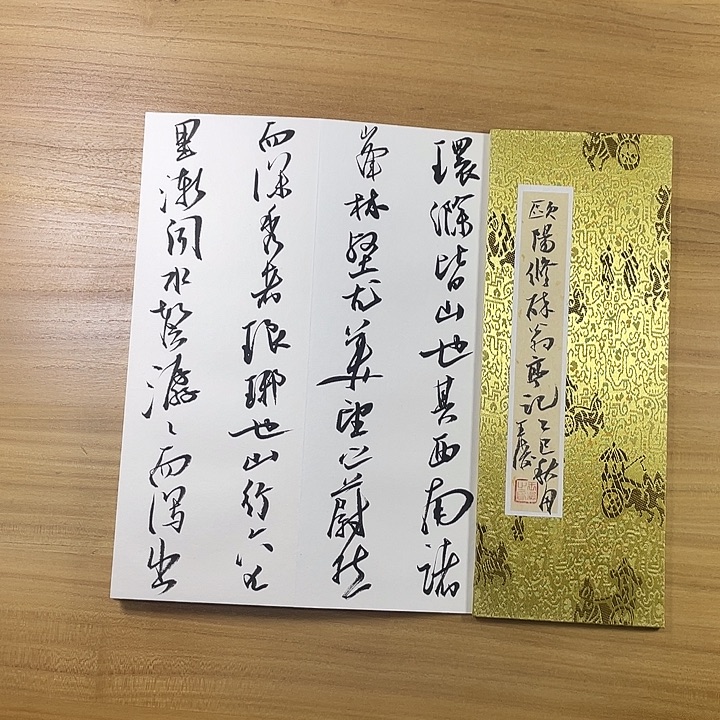 歐陽修醉翁亭記
乙巳秋月
王
環滁皆山也其西南諸
峯林壑尤美望之蔚然
而深秀者琅琊也山行六七
里漸聞水聲潺〻而瀉出